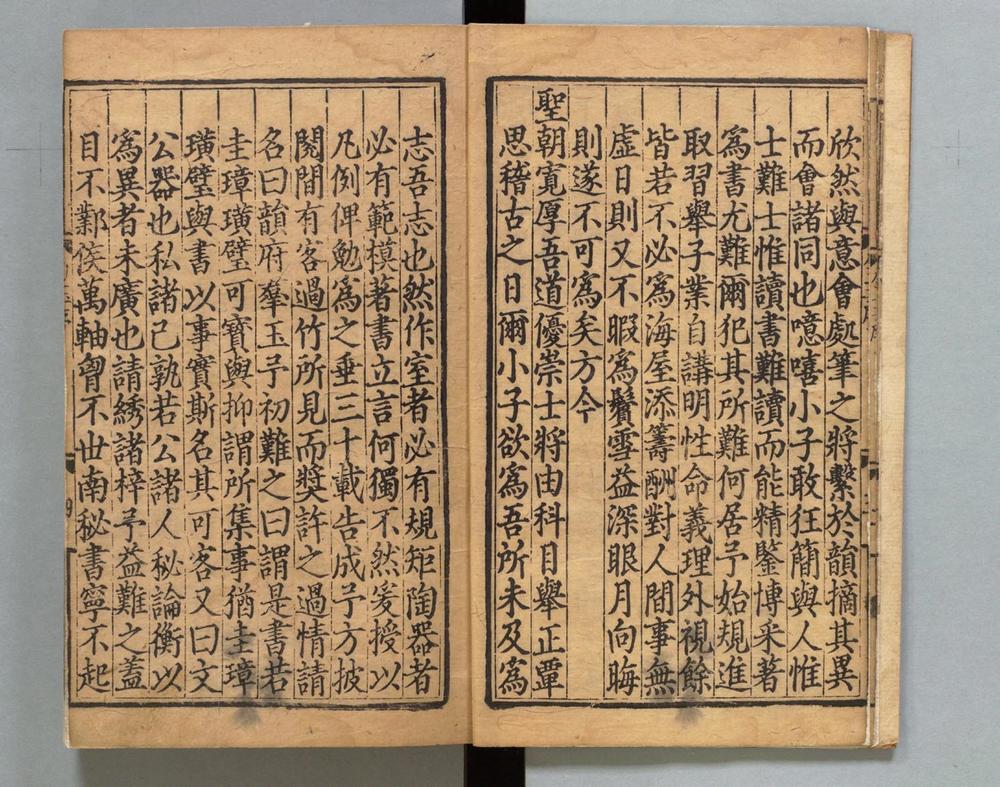 欣然與意會處筆之將繫於韻摘其異
而會諸同也噫嘻小子敢狂簡與人惟
士難士惟讀書難讀而能精鑒博采著
為書尤難爾犯其所難何居予始規進
取習舉子業自講明性命義理外視餘
皆若不必為海屋添籌酬對人間事無
虛日則又不暇為鬢雪益深眼月向晦
則遂不可為矣方今
聖朝寬厚吾道優崇士將由科目舉正覃
思稽古之日爾小子欲為吾所未及為
志吾志也然作室者必有規矩陶器者
必有範模著書立言何獨不然爰授以
凡例俾勉為之垂三十載告成予方披
閱間有客過竹所見而獎許之過情請
名曰韻府羣玉予初難之曰謂是書若
圭璋璜璧可寶與抑謂所集事猶圭璋
璜璧與書以事實斯名其可客又曰文
公器也私諸己孰若公諸人秘論衡以
為異者未廣也請綉諸梓予益難之蓋
目不鄴侯萬軸胷不世南秘書寧不起